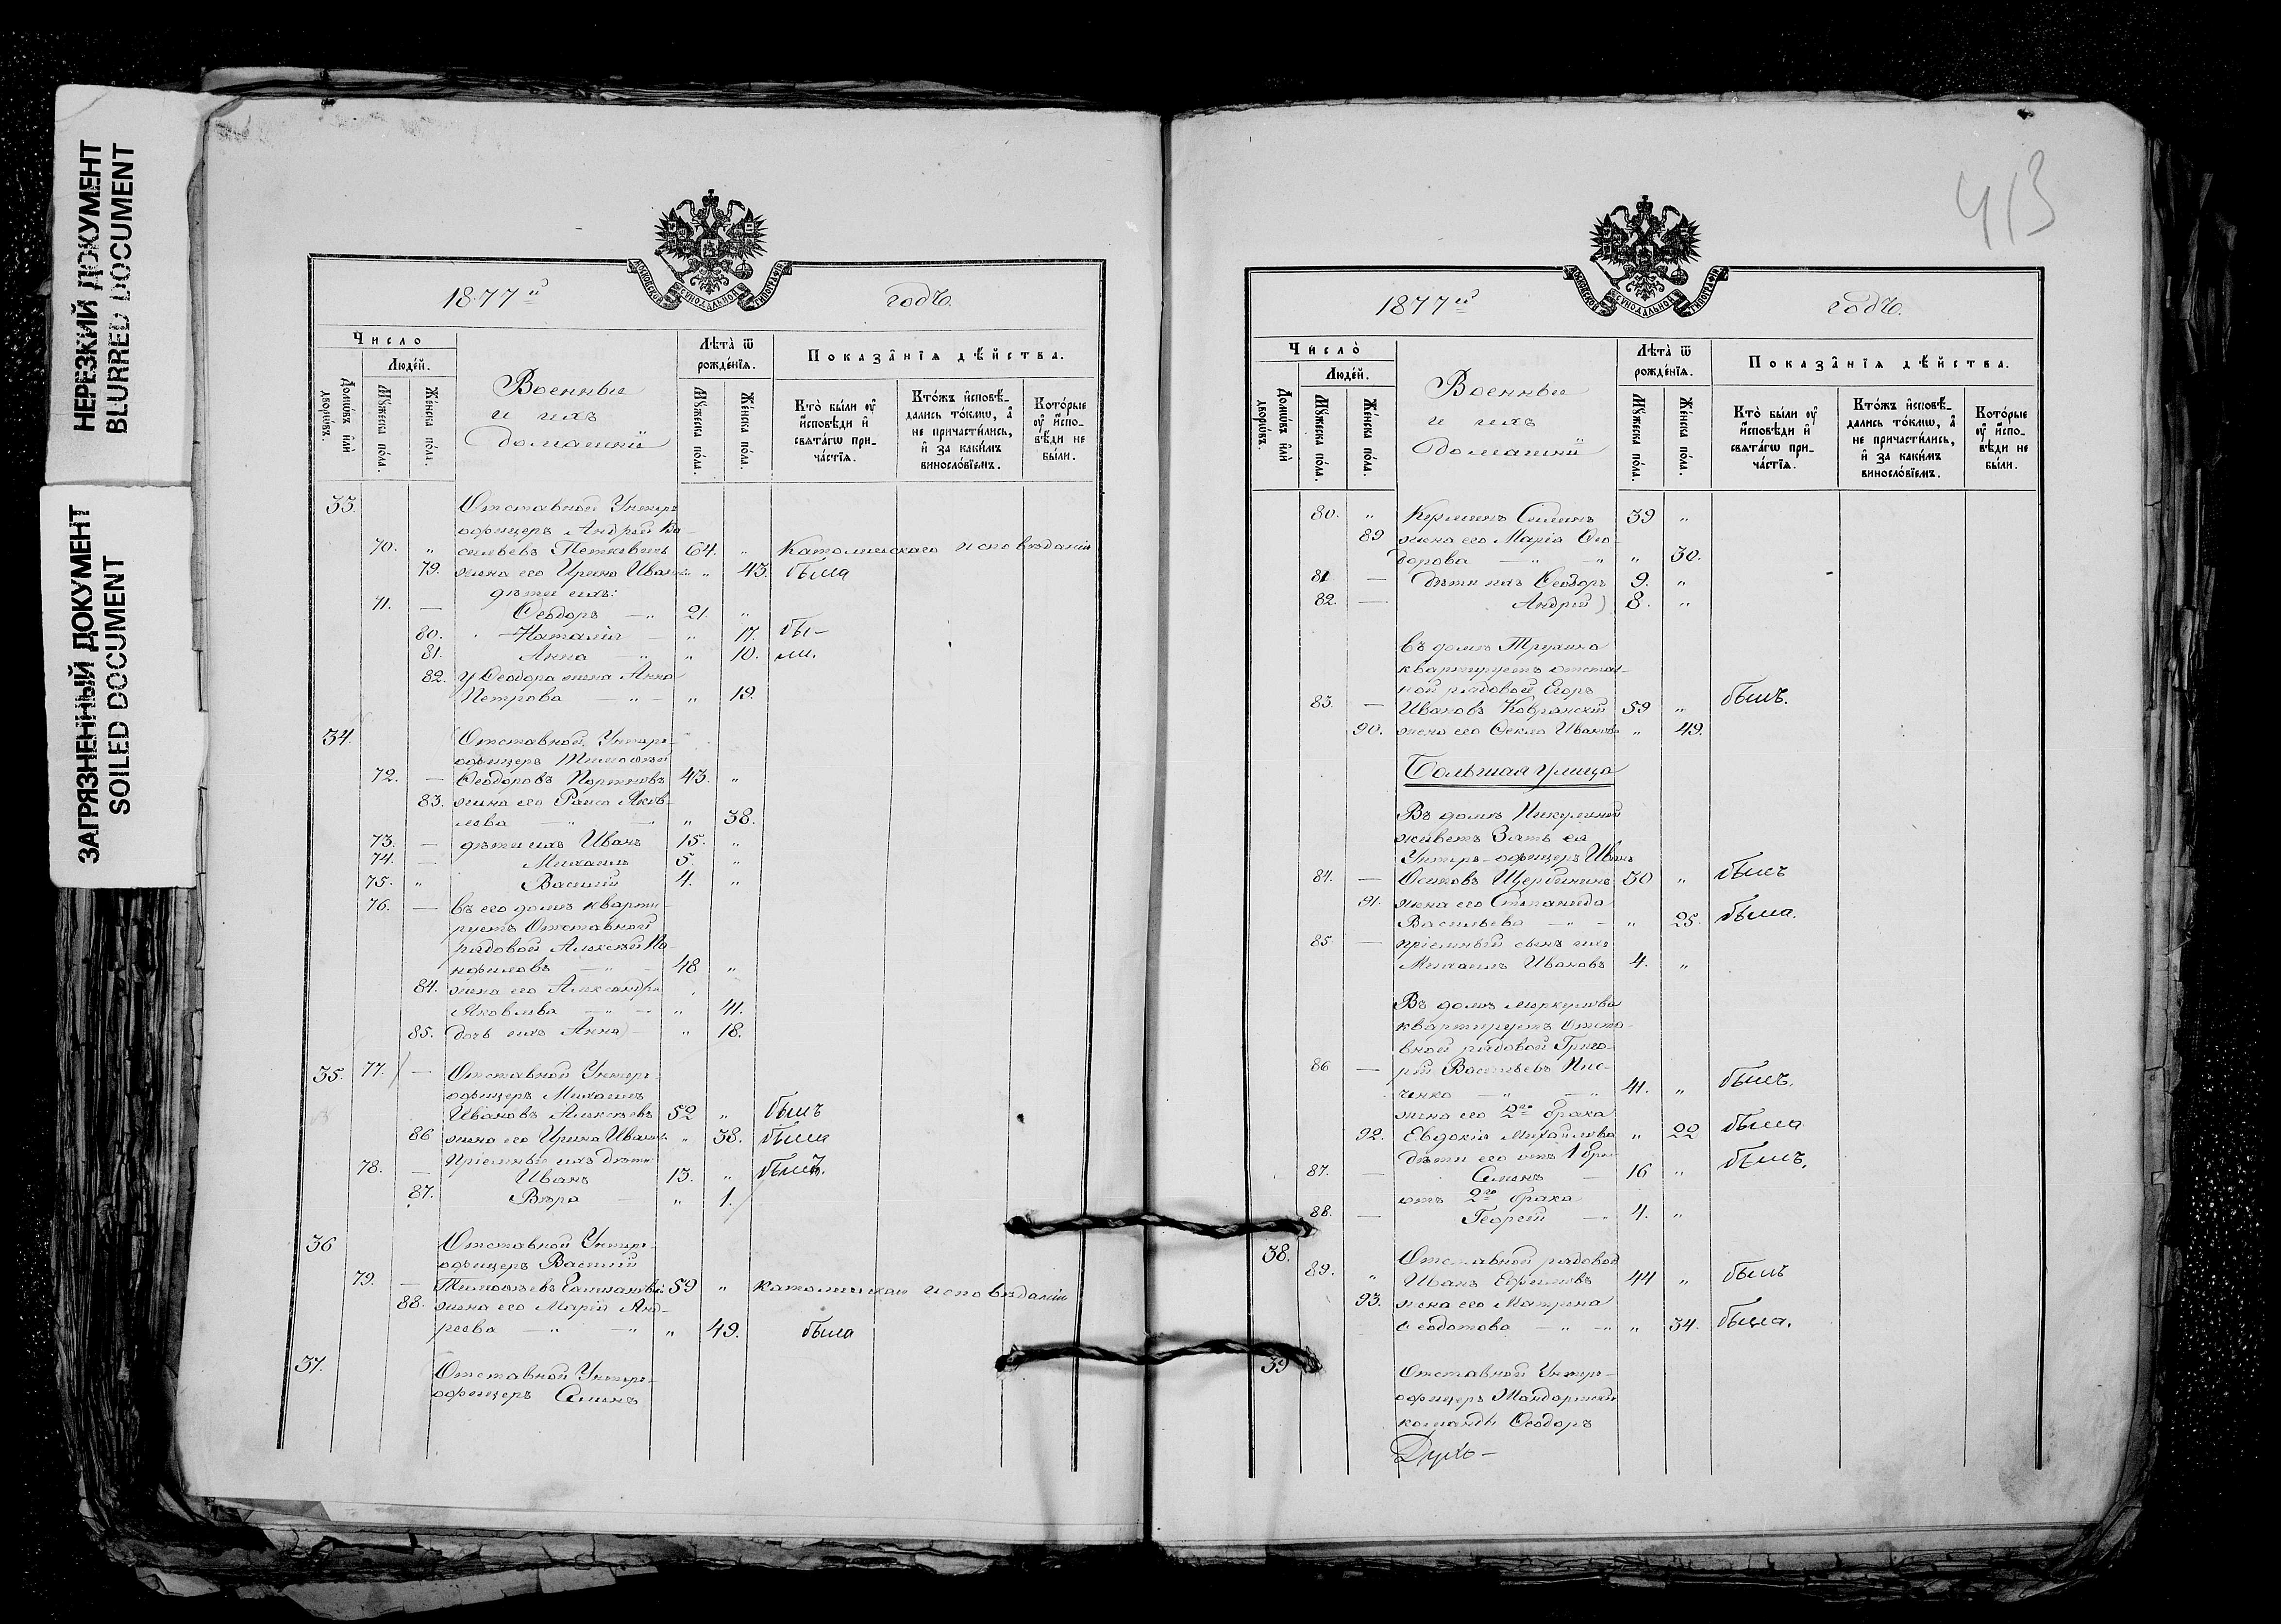 НЕРЕЗКИЙ ДОКУМЕНТ
BLURRED DOCUMENT
ЗАГРЯЗНЕННЫЙ ДОКУМЕНТ
SOILED DOCUMENT
МОСКОВСКОЙ СѴНОДАЛЬНОЙ ТИПОГРАФІИ
1877й годъ.
Число
Людей.
Домѡвъ или дворѡвъ.
Мꙋжеска пола.
Женска пола.
Военные
и ихъ
домашніи
Лѣта ѿ рожденїѧ.
Мꙋжеска пола.
Женска пола.
Показанїѧ дѣйства.
Кто были оу исповѣди и свѧтагѡ причастїѧ.
Ктожъ исповѣдались токмѡ, а не причастились, и за какимъ винословїемъ.
Которые оу исповѣди не были.
33. Отставной Унтеръ
офицеръ Андрей Ва-
70. " сильевъ Петкевичъ 64. " Католическаго исповѣданія
79. жена его Ирина Иван " 43. была
дѣти ихъ:
71. — Ѳеодоръ — " 21. "
80. " Наталія — " 17. бы-
81. Анна — " " 10. ли.
82. у Ѳеодора жена Анна
Петрова — " — " 19.
34. Отставной Унтеръ-
офицеръ Тимоѳей
72. — Ѳеодоровъ 43. "
83. жена его Раиса Яков-
лева — " — " " 38.
73. — дѣти ихъ Иванъ 15. "
74. — Михаилъ 5. "
75. " Василій 4. "
76. — въ его домѣ кварти-
руетъ Отставной
рядовой Алексѣй Па-
нфиловъ — " — 48 "
84. жена его Александра
Яковлева — " — " 41.
85. дочь ихъ Анна — " 18.
35. 77. — Отставной Унтеръ-
офицеръ Михаилъ
Ивановъ Алексѣевъ 52 " былъ
86 жена его Ирина Иванов. " 38. была
Пріемные ихъ дѣти
78. — Иванъ 13. " былъ.
87. Вѣра — " 1.
36 Отставной Унтеръ-
офицеръ Василій
79. — Тимоѳеевъ 59 " католическаго исповѣданія
88. жена его Марія Анд-
реева — " — " " 49. была
37. Отставной Унтеръ-
офицеръ Семенъ
413
МОСКОВСКОЙ СѴНОДАЛЬНОЙ ТИПОГРАФІИ
1877й годъ.
Число
Людей.
Домѡвъ или дворѡвъ.
Мꙋжеска пола.
Женска пола.
Военные
и ихъ
домашніи
Лѣта ѿ рожденїѧ.
Мꙋжеска пола.
Женска пола.
Показанїѧ дѣйства.
Кто были оу исповѣди и свѧтагѡ причастїѧ.
Ктожъ исповѣдались токмѡ, а не причастились, и за какимъ винословїемъ.
Которые оу исповѣди не были.
80. " Силинъ 39 "
89 жена его Марія Ѳео-
дорова — " — " " 30.
81 — дѣти ихъ Ѳеодоръ 9. "
82. — Андрей 8. "
въ домѣ
квартируетъ отстав-
ной рядовой Егоръ
83. — Ивановъ 59 " былъ.
90. жена его Ѳекла Иванова " 49.
Большая улица
Въ домѣ Пикулиной
живетъ Зять ея
Унтеръ-офицеръ Иванъ
84. — Осиповъ Щербининъ 30 " былъ
91. жена его Степанида
Васильева — " — " 25. была.
85 — пріемный сынъ ихъ
Михаилъ Ивановъ 4. "
Въ домѣ Меркулова
квартируетъ Отста-
вной рядовой Григо-
86 — рій Васильевъ Пис-
ченко — " — " 41. " былъ.
жена его 2го брака
92. Евдокія Михайлова " 22 была
дѣти его отъ 1 бра
87. — Семенъ — 16 " былъ.
отъ 2го брака
88. — Георгій — " 4. "
38. Отставной рядовой
89. " Иванъ Ефимовъ 44 " былъ
93. жена его Матрена
Ѳеодотова — " — " " 34. была.
39 Отставной Унтеръ-
офицеръ Жандармской
команды Ѳеодоръ
Духо-